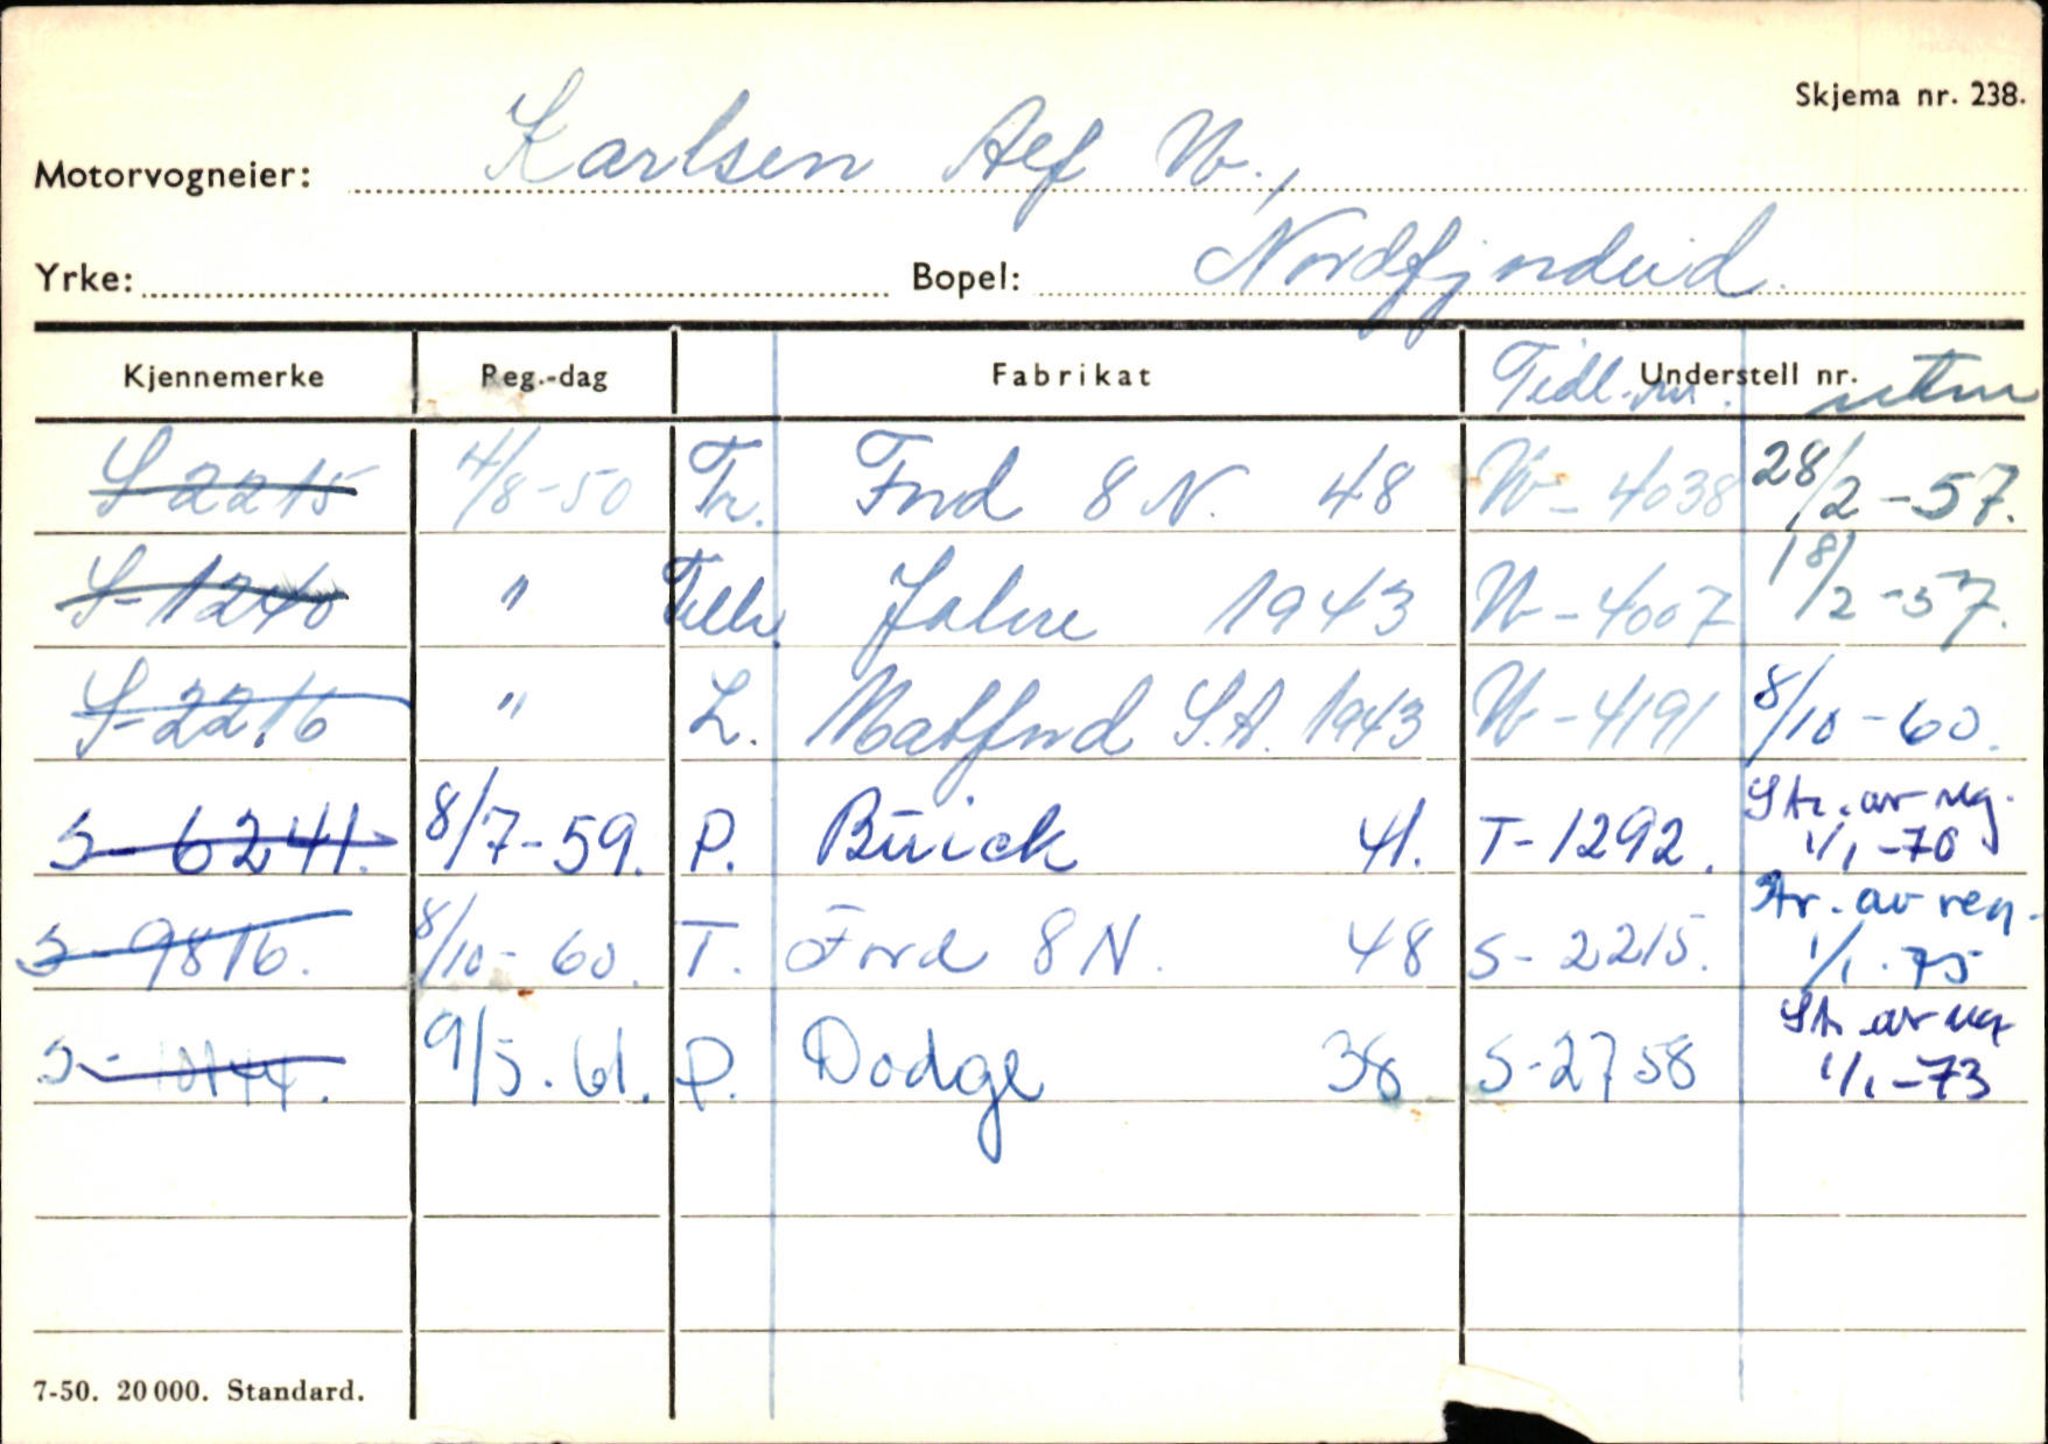 Skjema nr. 238.
Motorvogneier: Karlsen Alf W.,
Yrke: Bopel: Nordfjordeid.
Kjennemerke Reg.-dag Fabrikat Tidl. nr. Understell nr.
S-2215 4/8-50 Tr. Ford 8 N. 48 W-4038 28/2-57.
S-1240 " Tilh. Jahre 1943 W-4007 18/2-57.
S-2216 " L. Matford S.A. 1943 W-4191 8/10-60.
S-6241. 8/7-59. P. Buick 41. T-1292. Str. av reg. 1/1-70
S-9816. 8/10-60. T. Ford 8 N. 48 S-2215. Str. av reg. 1/1-75
S-10144. 9/5.61. P. Dodge 38 S-2758 Str. av reg 1/1-73
7-50. 20 000. Standard.